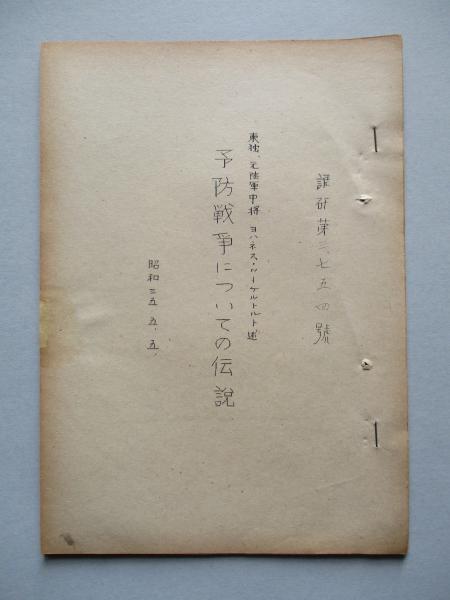 調研第三、七五四號
東独、元陸軍中将 ヨハネス・ツーケルトルト述
予防戦争についての伝説
昭和三五、五、五、